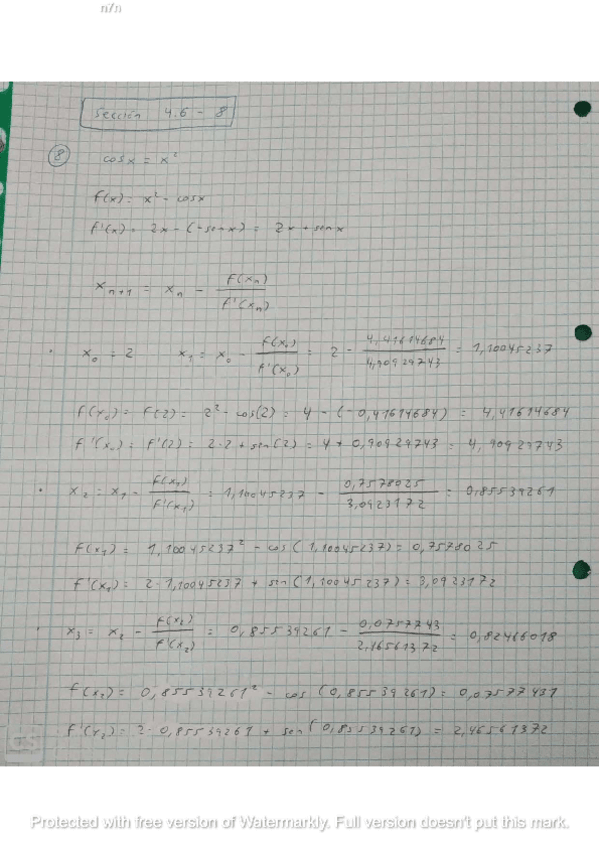 n7n
Sección 4.6 - 8
8
cosx = x²
f(x) = x² - cosx
f'(x) = 2x - (-senx) = 2x + senx
x_{n+1} = x_n - f(x_n) / f'(x_n)
x_0 = 2 x_1 = x_0 - f(x_0) / f'(x_0) = 2 - 4,41614684 / 4,90929743 = 1,10045237
f(x_0) = f(2) = 2² - cos(2) = 4 - (-0,41614684) = 4,41614684
f'(x_0) = f'(2) = 2·2 + sen(2) = 4 + 0,90929743 = 4,90929743
x_2 = x_1 - f(x_1) / f'(x_1) = 1,10045237 - 0,7578025 / 3,0923172 = 0,85539261
f(x_1) = 1,10045237² - cos(1,10045237) = 0,7578025
f'(x_1) = 2·1,10045237 + sin(1,10045237) = 3,0923172
x_3 = x_2 - f(x_2) / f'(x_2) = 0,85539261 - = 0,82466018
f(x_2) = 0,85539261² - cos(0,85539261) =
f'(x_2) = 2·0,85539261 + sen(0,85539261) = 2,46561372
Protected with free version of Watermarkly. Full version doesn't put this mark.